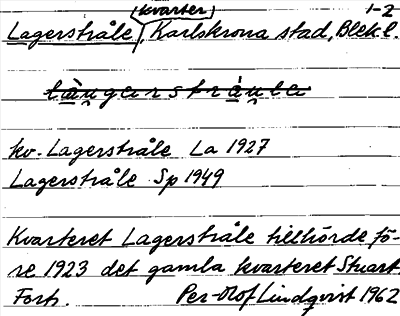 (kvarter) 1-2
Lagerstråle, Karlskrona stad, Blek l.
kv. Lagerstråle La 1927
Lagerstråle Sp 1949
Kvarteret Lagerstråle tillhörde fö-
re 1923 det gamla kvarteret Stuart.
Forts. Per-Olof Lindqvist 1962